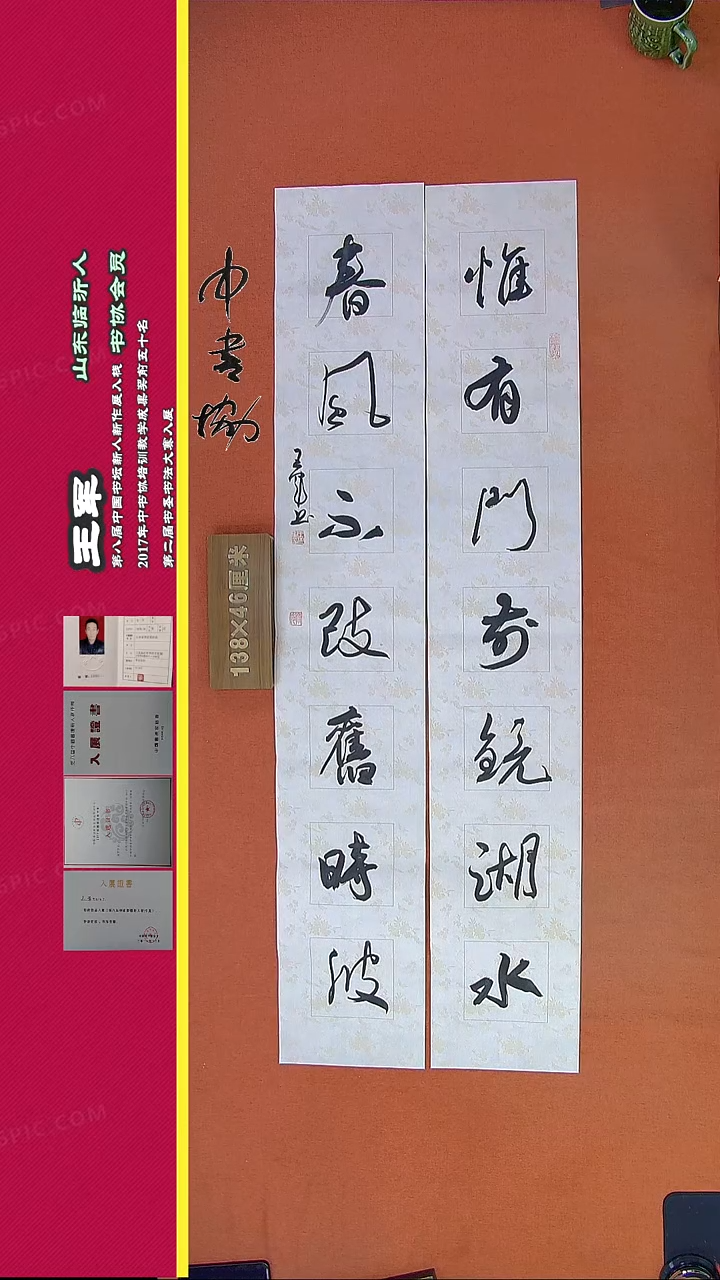 惟有門前鏡湖水
春風不改舊時波
王軍书
中書協
138×46厘米
王军
山东临沂人
书协会员
第八届中国书坛新人新作展入展
2017年中书协培训教学成果奖前五十名
第二届书圣书法大赛入展
入展證書
入展证書